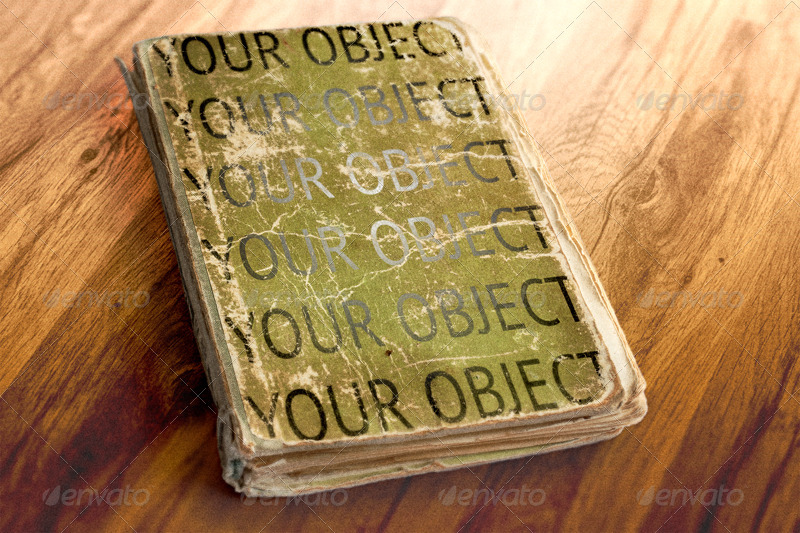 YOUR OBJECT
YOUR OBJECT
YOUR OBJECT
YOUR OBJECT
YOUR OBJECT
YOUR OBJECT
envato envato envato envato
envato envato envato envato
envato envato envato envato